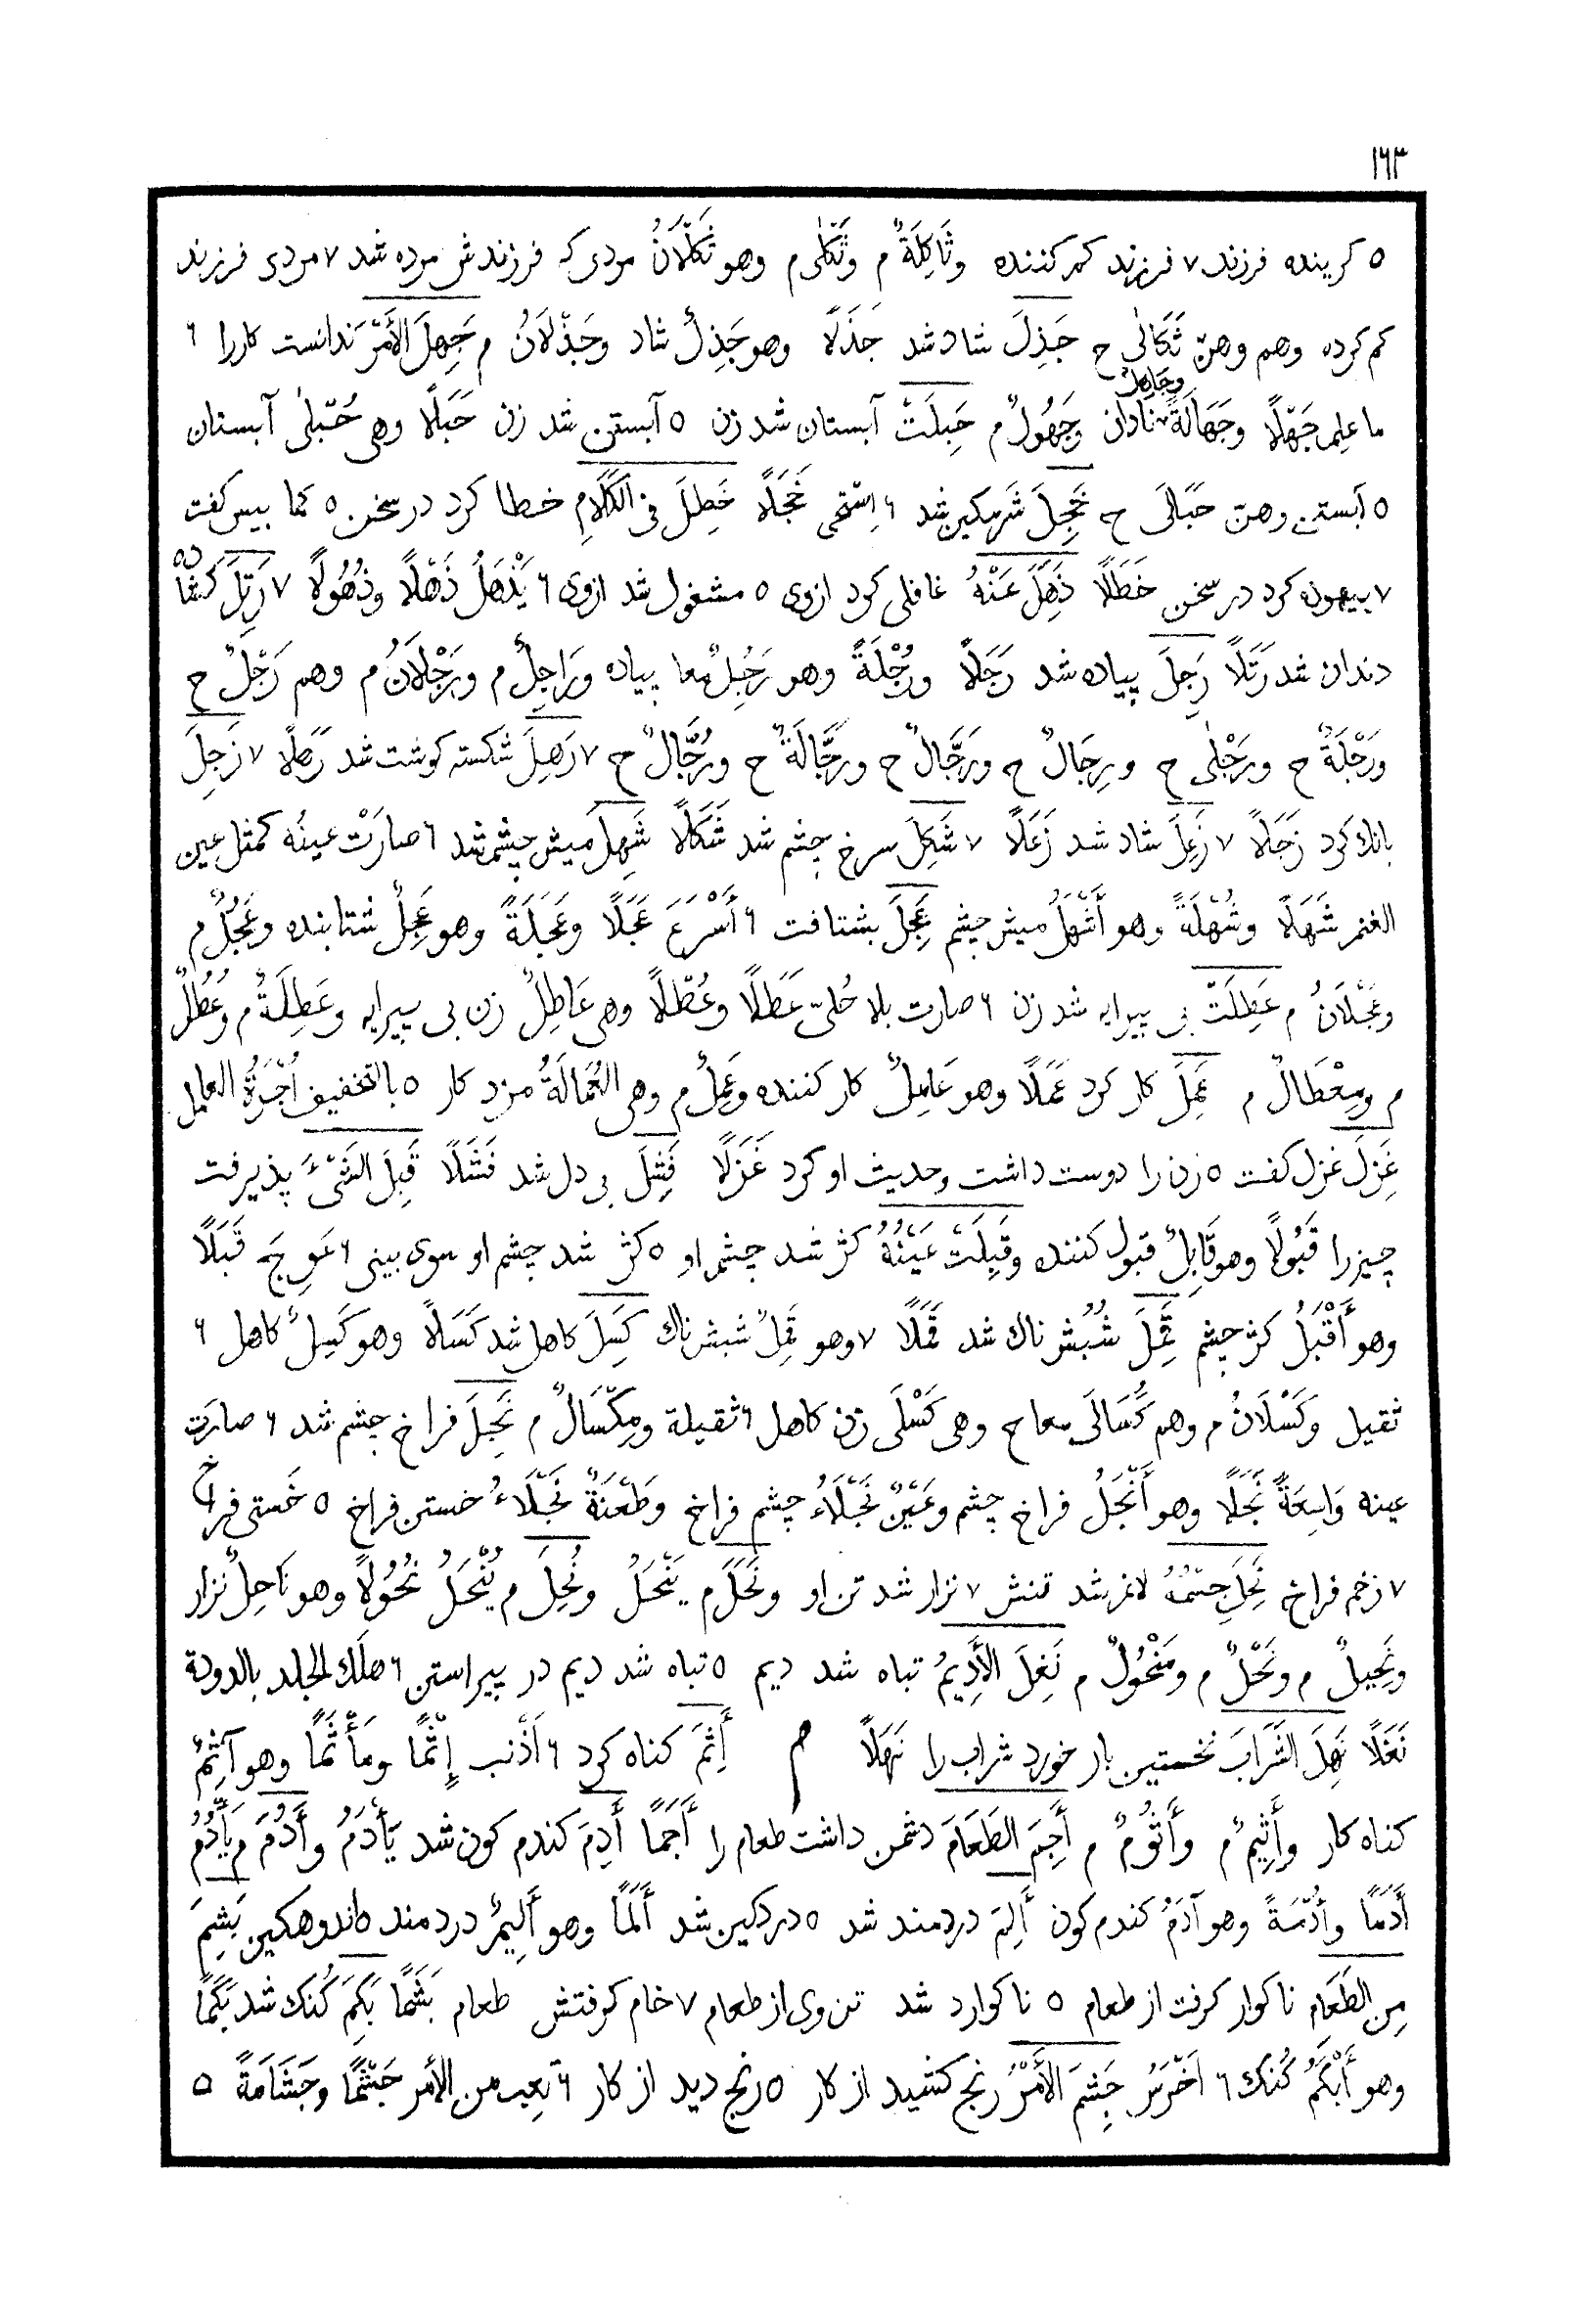 ١٦٣
٥ كرينده فرزند ٧ فرزند كم كننده وثَاكِلَةٌ م وثَكْلٰى م وهو ثَكْلَانُ مردى كه فرزندش مرده شد ٧ مردى فرزند
كم كرده وهم وهنّ ثَكَالٰى ح جَذِلَ شاد شد جَذَلًا وهو جَذِلٌ شاد وجَذْلَانُ م جَهِلَ الأَمْرَ ندانست كاررا ٦
ما علم جَهْلًا وجَهَالَةً وجَاهِلٌ نادان وجَهُولٌ م حَبِلَتْ آبستان شد زن ٥ آبستن شد زن حَبَلًا وهى حُبْلٰى آبستان
٥ آبستن وهنّ حَبَالَى ح خَجِلَ شَرمكين شد ٦ اِسْتحى خَجَلًا خَطِلَ فى الكَلَامِ خطا كرد در سخن ٥ كما بيس كفت
٧ بيهوده كرد در سخن خَطَلًا ذَهِلَ عَنْهُ غافلى كرد ازوى ٥ مشغول شد ازوى ٦ يَذْهَلُ ذَهْلًا وذُهُولًا ٧ رَتِلَ كشاده
دندان شد رَتَلًا رَجِلَ پياده شد رَجَلًا ورُجْلَةً وهو رَجُلٌ معا پياده ورَاجِلٌ م ورَجْلَانُ م وهم رَجْلٌ ح
ورَجْلَةٌ ح ورَجْلٰى ح ورِجَالٌ ح ورَجَّالٌ ح ورَجَّالَةٌ ح ورُجَّالٌ ح ٧ رَهِلَ شكسته كوشت شد رَهَلًا ٧ زَجِلَ
بانك كرد زَجَلًا ٧ زَعِلَ شاد شد زَعَلًا ٧ شَكِلَ سرخ چشم شد شَكَلًا شَهِلَ ميش چشم شد ٦ صارَتْ عينُه كمثل عين
الغنم شَهَلًا وشُهْلَةً وهو أَشْهَلُ ميش چشم عَجِلَ بشتافت ٦ أَسْرَعَ عَجَلًا وعَجَلَةً وهو عَجِلٌ شتابنده وعَجُلٌ م
وعَجْلَانُ م عَطِلَتْ بى پيرايه شد زن ٦ صارت بلا حُلِىّ عَطَلًا وعُطْلًا وهى عَاطِلٌ زن بى پيرايه وعَطِلَةٌ م وعُطُلٌ
م ومِعْطَالٌ م عَمِلَ كار كرد عَمَلًا وهو عَامِلٌ كار كننده وعَمِلٌ م وهى العُمَالَةُ مزد كار ٥ بالتخفيف أُجْرَةُ العامل
غَزِلَ غزل كفت ٥ زن را دوست داشت وحديث او كرد غَزَلًا فَشِلَ بى دل شد فَشَلًا قَبِلَ الشَىْءَ پذيرفت
چيزرا قَبُولًا وهو قَابِلٌ قبول كننده وقَبِلَتْ عَيْنُهُ كژ شد چشم او ٥ كژ شد چشم او سوى بينى ٦ عَوِجَ قَبَلًا
وهو أَقْبَلُ كژ چشم قَمِلَ شُبُش ناك شد قَمَلًا ٧ وهو قَمِلٌ شبش ناك كَسِلَ كاهل شد كَسَلًا وهو كَسِلٌ كاهل ٦
ثقيل وكَسْلَانُ م وهم كُسَالَى معا ح وهى كَسْلَى زن كاهل ٦ ثقيلة ومِكْسَالٌ م نَجِلَ فراخ چشم شد ٦ صارَت
عينه وَاسِعَةً نَجَلًا وهو أَنْجَلُ فراخ چشم وعَيْنٌ نَجْلَاءُ چشم فراخ وطَعْنَةٌ نَجْلَاءُ خستن فراخ ٥ خَستى فراخ
٧ زخم فراخ نَحِلَ جِسْمُهُ لاغر شد تنش ٧ نزار شد تن او ونَحَلَ م يَنْحَلُ ونُحِلَ م يُنْحَلُ نُحُولًا وهو نَاحِلٌ نزار
ونَحِيلٌ م ونَحْلٌ م ومَنْحُولٌ م نَغِلَ الأَدِيمُ تباه شد ديم ٥ تباه شد ديم در پيراستن ٦ هلَك الجلد بالدودة
نَغَلًا نَهِلَ الشَرَابَ نخستين بار خورد شراب را نَهَلًا م أَثِمَ كناه كرد ٦ اَذْنب إِثْمًا ومَأْثَمًا وهو آثِمٌ
كناه كار وأَثِيمٌ م وأَثُومٌ م أَجِمَ الطَعَامَ دشمن داشت طعام را أَجَمًا أَدِمَ كندم كون شد يَأْدَمُ وأَدُمَ م يَأْدُمُ
أَدَمًا وأُدْمَةً وهو آدَمُ كندم كون أَلِمَ دردمند شد ٥ دردكين شد أَلَمًا وهو أَلِيمٌ دردمند ٥ اندوهكين بَشِمَ
مِن الطَعَام ناكوار كرفت از طعام ٥ ناكوارد شد تن وى از طعام ٧ خام كرفتش طعام بَشَمًا بَكِمَ كُنك شد بَكَمًا
وهو أَبْكَمُ كُنك ٦ اَخْرَسُ جَشِمَ الأَمْرَ رنج كشيد از كار ٥ رنج ديد از كار ٦ تعِب من الأمر جَشْمًا وجَشَامَةً ٥